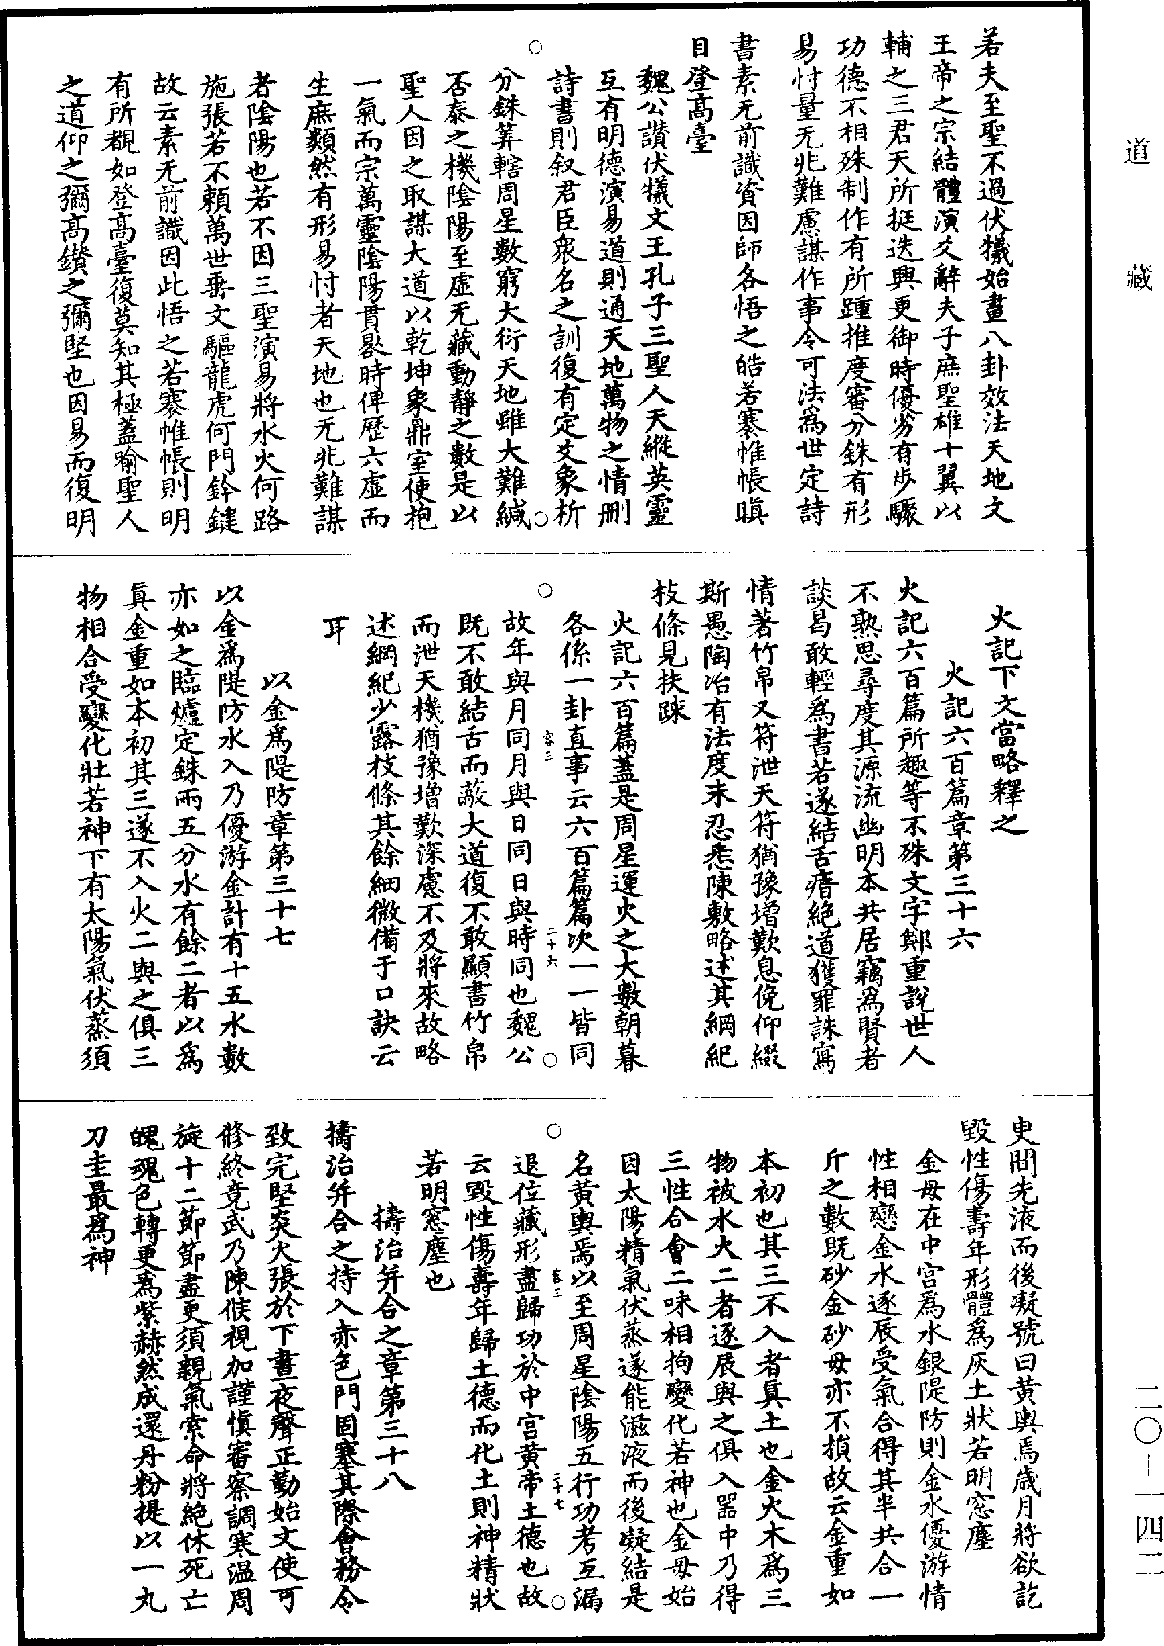 道藏
若夫至聖不過伏犧始畫八卦效法天地文
王帝之宗結體演爻辭夫子庶聖雄十翼以
輔之三君天所挺迭興更御時優劣有步驟
功德不相殊制作有所踵推度審分銖有形
易忖量无兆難慮謀作事令可法為世定詩
書素无前識資因師各悟之皓若褰帷帳瞋
目登高臺
魏公讚伏犧文王孔子三聖人天縱英靈
互有明德演易道則通天地萬物之情刪
詩書則叙君臣衆名之訓復有定爻象析
分銖筭轄周星數窮大衍天地雖大難緘
否泰之機陰陽至虛无藏動靜之數是以
聖人因之取謀大道以乾坤象鼎室使抱
一氣而宗萬靈陰陽貫晷時俾歷六虛而
生庶類然有形易忖者天地也无兆難謀
者陰陽也若不因三聖演易將水火何路
施張若不賴萬世垂文驅龍虎何門鈐鍵
故云素无前識因此悟之若褰帷帳則明
有所覩如登高臺復莫知其極蓋喻聖人
之道仰之彌高鑽之彌堅也因易而復明
火記下文當略釋之
火記六百篇章第三十六
火記六百篇所趣等不殊文字鄭重說世人
不熟思尋度其源流幽明本共居竊為賢者
談曷敢輕為書若遂結舌瘖絶道獲罪誅寫
情著竹帛又符泄天符猶豫增歎息俛仰綴
斯愚陶冶有法度未忍悉陳敷略述其綱紀
枝條見扶踈
火記六百篇蓋是周星運火之大數朝暮
各係一卦直事云六百篇篇次一一皆同
故年與月同月與日同日與時同也魏公
既不敢結舌而蔽大道復不敢顯書竹帛
而泄天機猶豫增歎深慮不及將來故略
述綱紀少露枝條其餘細微備于口訣云
耳
以金為隄防章第三十七
以金為隄防水入乃優游金計有十五水數
亦如之臨爐定銖兩五分水有餘二者以為
真金重如本初其三遂不入火二與之俱三
物相合受變化壯若神下有太陽氣伏蒸須
臾間先液而後凝號曰黃輿焉歲月將欲訖
毀性傷壽年形體為灰土狀若明窓塵
金母在中宮為水銀隄防則金水優游情
性相戀金水逐辰受氣合得其半共合一
斤之數既砂金砂母亦不損故云金重如
本初也其三不入者真土也金火木為三
物被水火二者逐展與之俱入器中乃得
三性合會二味相拘變化若神也金母始
因太陽精氣伏蒸遂能滋液而後凝結是
名黃輿焉以至周星陰陽五行功考互漏
退位藏形盡歸功於中宮黃帝土德也故
云毀性傷壽年歸土德而化土則神精狀
若明窓塵也
擣治并合之章第三十八
擣治并合之持入赤色門固塞其際會務令
致完堅炎火張於下晝夜聲正勤始文使可
修終竟武乃陳候視加謹慎審察調寒温周
旋十二節節盡更須親氣索命將絶休死亡
魄魂色轉更為紫赫然成還丹粉提以一丸
刀圭最為神
二〇—一四二